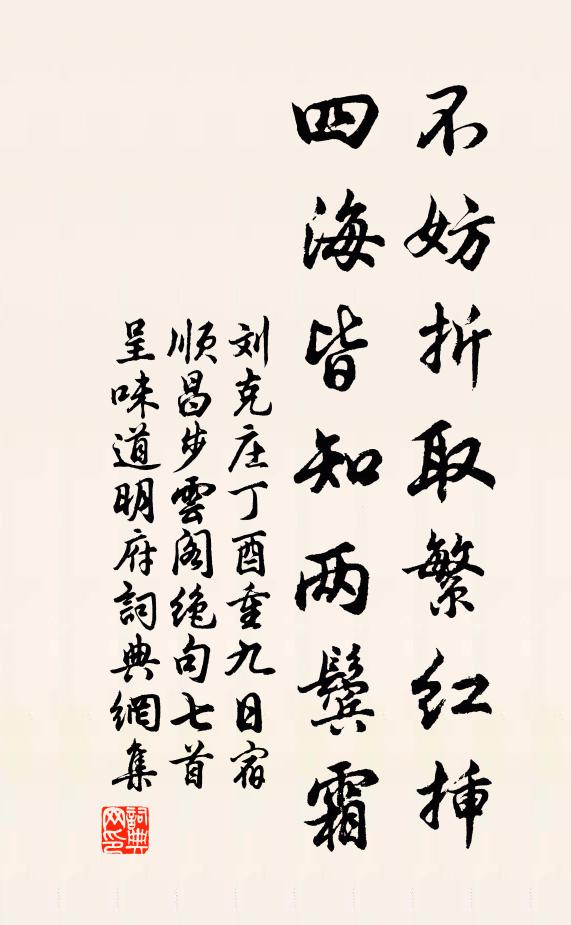 不妨折取繁红插
四海皆知两鬓霜
刘克庄丁酉重九日宿
顺昌步雲阁绝句七首
呈味道明府詞典網集
詞典网印